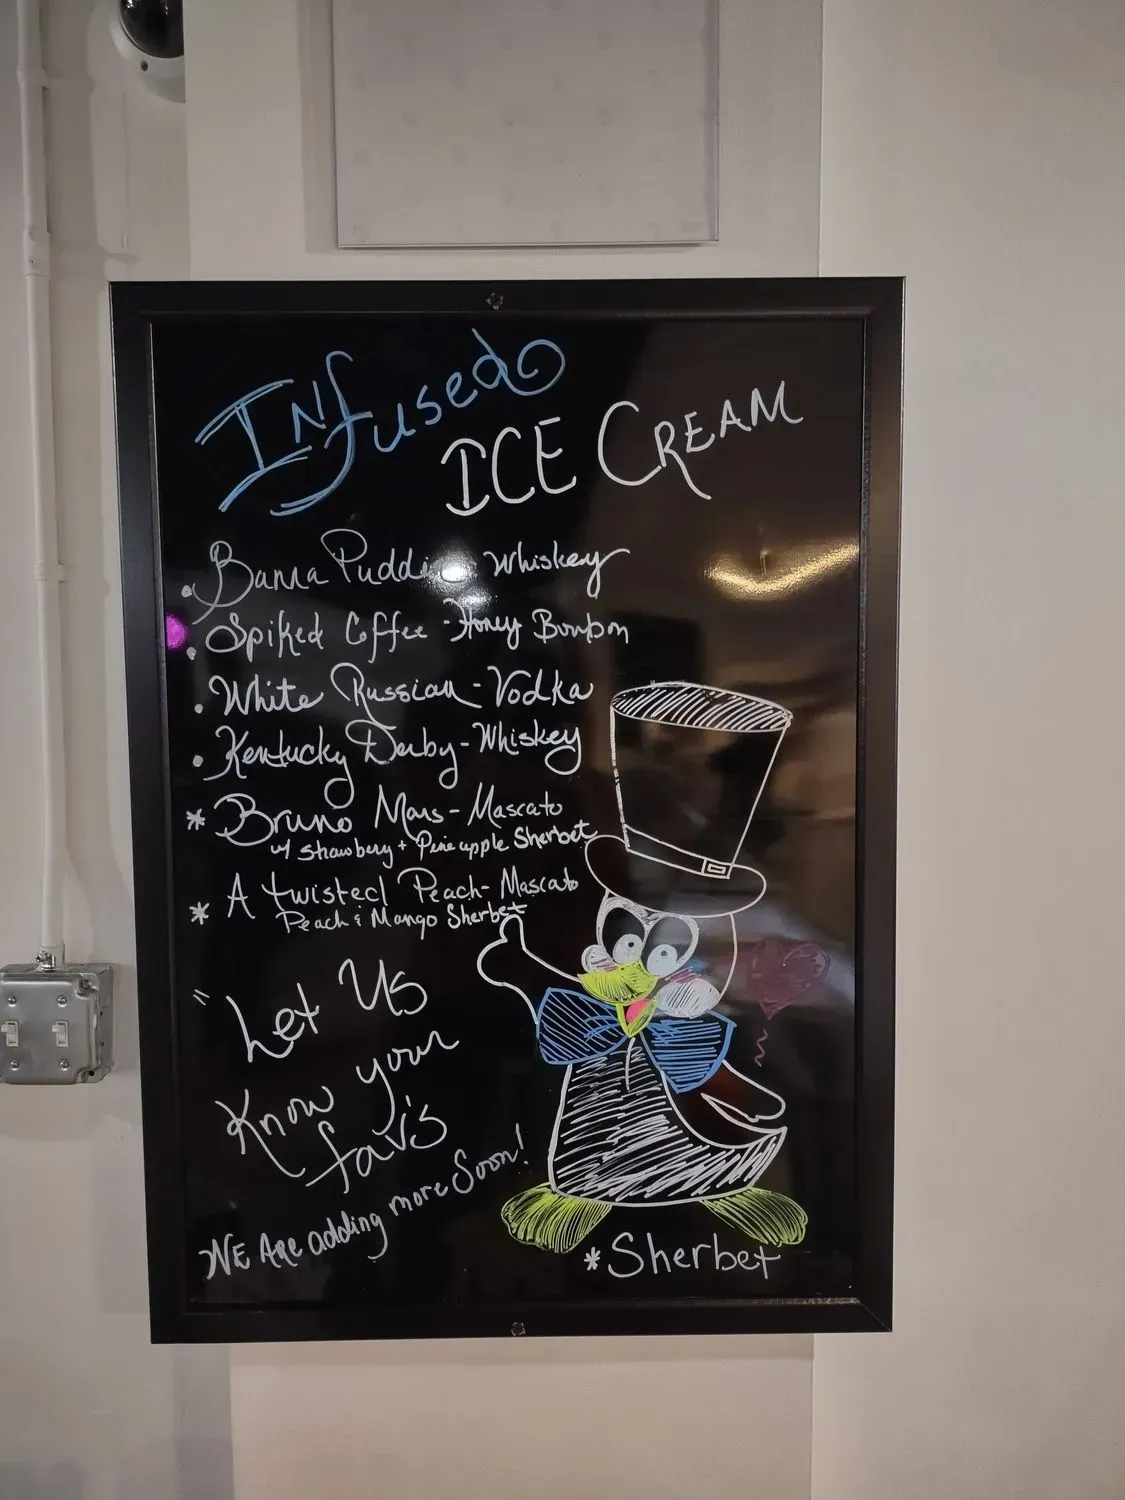 Infused
ICE CREAM
• Banna Pudding Whiskey
• Spiked Coffee - Honey Bourbon
• White Russian - Vodka
• Kentucky Derby - Whiskey
* Bruno Mars - Mascato
w/ Strawbery + Pineapple Sherbet
* A twisted Peach - Mascato
Peach & Mango Sherbet
" Let Us
Know your
fav's
WE ARE adding more Soon!
* Sherbet